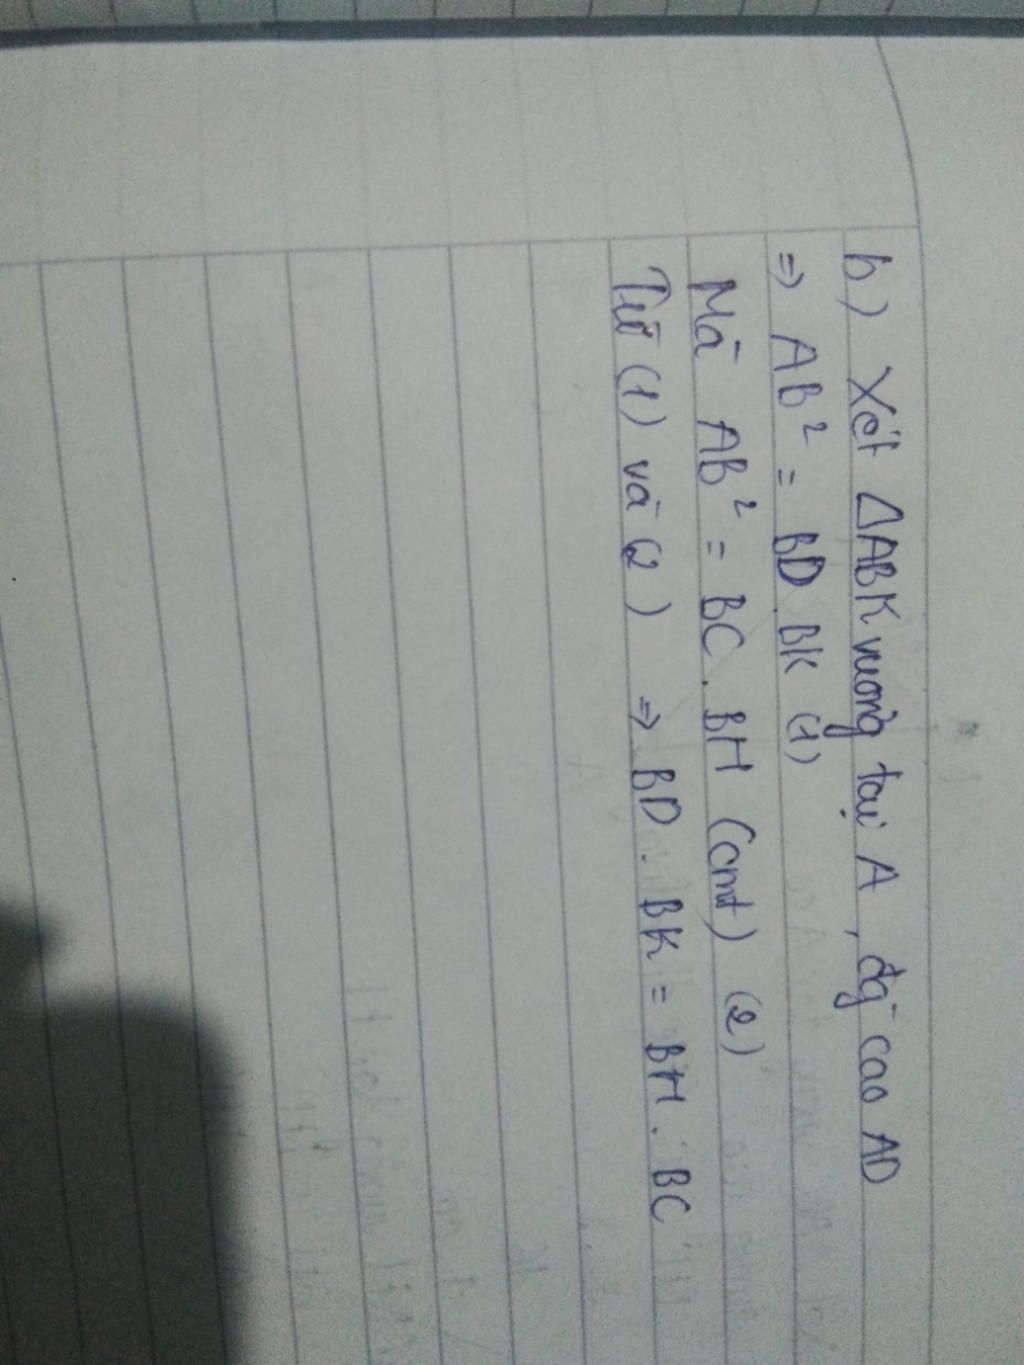 b) Xét ΔABK vuông tại A, đg cao AD
=> AB² = BD.BK (1)
Mà AB² = BC.BH (cmt) (2)
Từ (1) và (2) => BD.BK = BH.BC